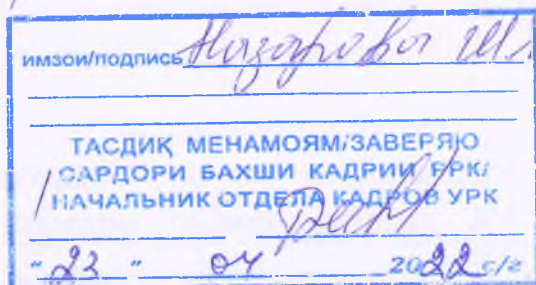 имзои/подпись Назарова Ш.
ТАСДИҚ МЕНАМОЯМ/ЗАВЕРЯЮ
САРДОРИ БАХШИ КАДРИИ РРК/
НАЧАЛЬНИК ОТДЕЛА КАДРОВ УРК
"23" 04 2022 с/г